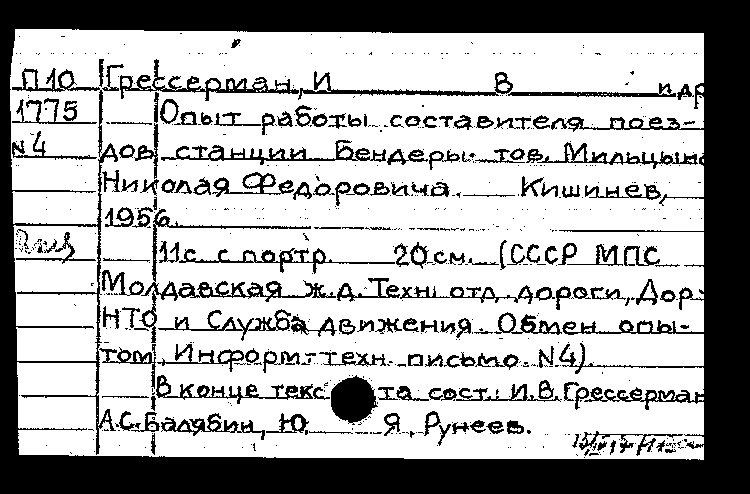 П10 Грессерман, И В и др
1775 Опыт работы составителя поез-
N4 дов станции Бендеры тов. Мильцын
Николая Федоровича. Кишинев,
1956.
11с. с портр. 20 см. (СССР МПС
Молдавская ж.д. Техн. отд дороги, Дор-
НТО и Служба движения. Обмен опы-
том, Информ.-техн. письмо. N4).
В конце текста сост.: И.В. Грессерман
А.С. Балябин, Ю Я, Рунеев.